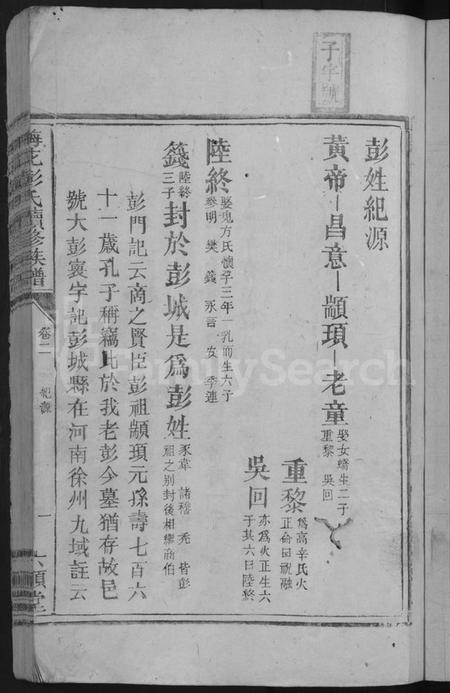 子字號
彭姓紀源
黃帝－昌意－顓頊－老童 娶女蟜生二子
重黎 吳回
重黎 為高辛氏火
正命曰祝融
吳回 亦為火正生六
子其六曰陸終
陸終 娶鬼方氏懷孕三年一乳而生六子
參明 樊 籛 永言 安 季連
籛 陸終
三子 封於彭城是為彭姓 豕韋 諸稽 禿 皆彭
祖之別封後相繼商伯
彭門記云商之賢臣彭祖顓頊元孫壽七百六
十一歲孔子稱竊比於我老彭今墓猶存故邑
號大彭寰宇記彭城縣在河南徐州九域註云
彭氏續修族譜
卷二
紀源
一
六順堂
FamilySearch